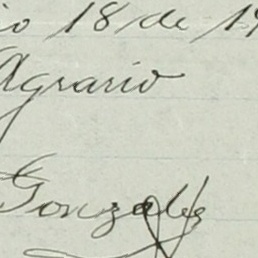 io 18 de 19
Agrario
Gonzalez